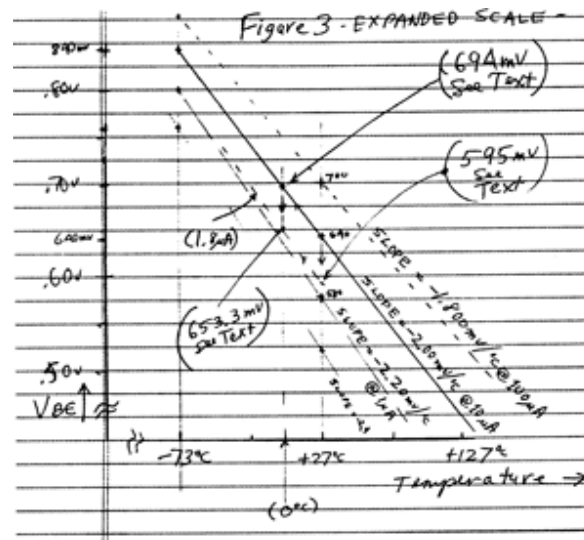 Figure 3 - EXPANDED SCALE -
840mv
.80v
(694mv
See Text)
(595mv
See
Text)
.70v
.70v
(1.8µA)
640
.60v
(653.3mv
See Text)
580
.50v
VBE ↑ ≈
SLOPE = -1.800mv/°C @ 100µA
SLOPE = -2.00mv/°C @ 10µA
SLOPE = -2.20mv/°C
@ 1µA
SLOPE =
-73°C
+27°C
+127°C
Temperature →
(0°C)